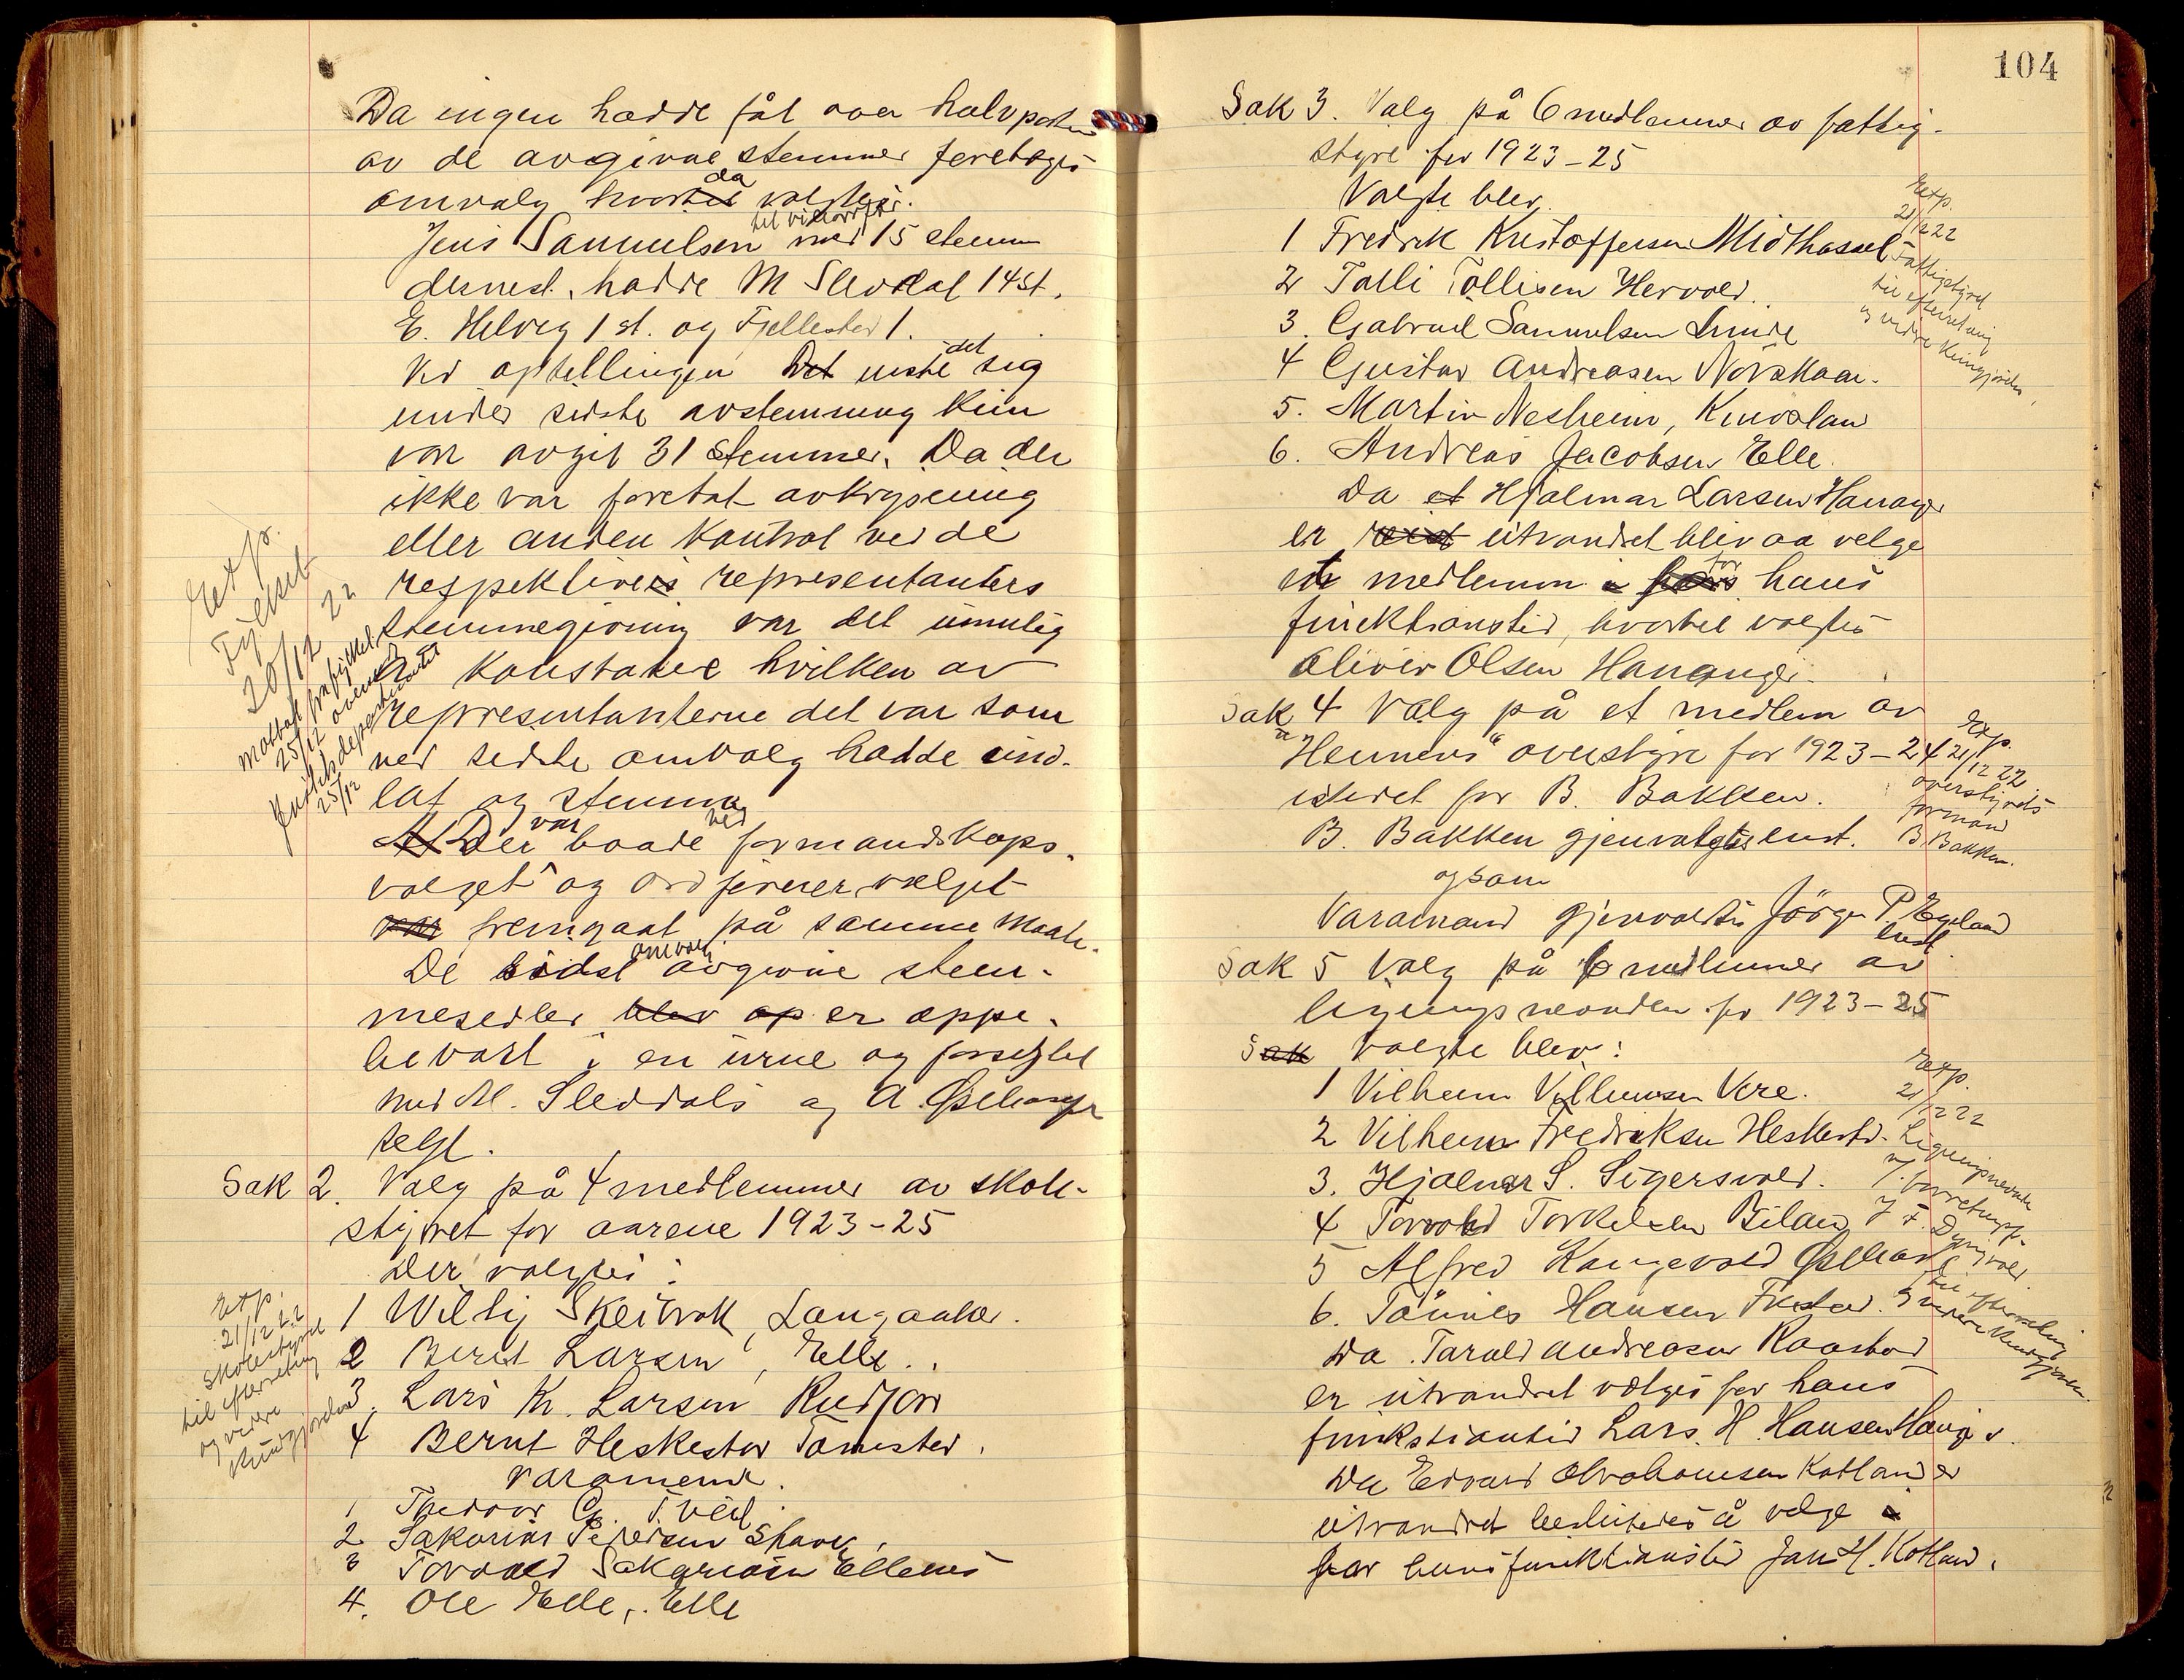 Da ingen hadde fåt over halvparten
av de avgivne stemmer foretoges
omvalg hvortil da valgtes
til viceordfører
Jens Samuelsen med 15 stemm
dernest hadde M Sleddal 14 st.
E. Helvig 1 st. og Fjellestad 1.
Ved optellingen Det viste det sig
under sidste avstemning kun
var avgit 31 stemmer. Da der
ikke var foretat avkrysning
eller anden kontrol ved de
respektives representanters
stemmegivning var det umulig
å konstatere hvilken av
representanterne det var som
ved sidste omvalg hadde und-
lat og stemme
Der var baade ved formandskaps-
valget og ordførervalget
var fremgaat på samme maate.
De sidst omvalg avgivne stem-
mesedler blev op er oppe-
bevart i en urne og forseglet
med M. Sleddals og A. Øslebangs
segl.
Expr.
Fylket
20/12 22
Mottatt fra fylket
25/12 oversendt
Justitsdepartementet
25/12
Sak 2. Valg på 4 medlemmer av skole-
styret for aarene 1923-25
Der valgtes:
1 Willy Skeibrok, Langaaker.
2 Bernt Larsen, Elle.
3. Lars Kr. Larsen Rudjord
4 Bernt Heskestad Tomstad.
Varamenn.
1 Theodor G. Tveit.
2 Sakarias Pedersen Skavy
3 Torvald Sakariasen Ellenes
4. Ole Elle, Elle
Exp.
21/12 22
Skolestyret
til efterretning
og videre
kundgjørelse
104
Sak 3. Valg på 6 medlemmer av fattig-
styre for 1923-25
Valgte blev.
1 Fredrik Kristoffersen Midthassel
2 Talli Tollisen Hervold.
3. Gabriel Samuelsen Lunde
4 Gustav Andreasen Nörskaar.
5. Martin Nesheim, Kurøsland
6. Andreas Jacobsen Elle.
Da et Hjalmar Larsen Hananger
er utvandret blev aa velge
et medlemm i for hans
funktionstid, hvortil valgtes
Oliver Olsen Hananger.
Exp.
21/12 22
Fattigstyret
til efterretning
og videre kungjörelse
Sak 4 Valg på et medlem av
"Hennens" overstyre for 1923-24
istedet for B. Bakken.
B. Bakken gjenvalgtes enst.
og som
Varamand gjenvalgtes Jörgen P. Egeland
enst
Exp.
21/12 22
overstyrets
formand
B. Bakken.
Sak 5 Valg på 6 medlemmer av
ligningsnevnden for 1923-25
Sak valgte blev:
1 Vilhelm Villumsen Vere.
2 Vilhelm Fredriksen Heskestad.
3. Hjalmar S. Sigersvold.
4 Torvald Torkelsen Biland
5 Alfred Kongevold
6. Tönnes Hansen Frestad.
Da Tarald Andreasen Kaastad
er utvandret vælges for hans
funkstiontid Lars H. Hansen Hauge
Da Edvard Abrahamsen Kotland er
utvandret besluttedes å velge i
for hans funktionstid Jan H. Kotland.
Exp.
21/12 22
Ligningsnevnden
v/ forretningsf.
J. F. Dyngvold
til efterretning
og videre kundgjørelse.